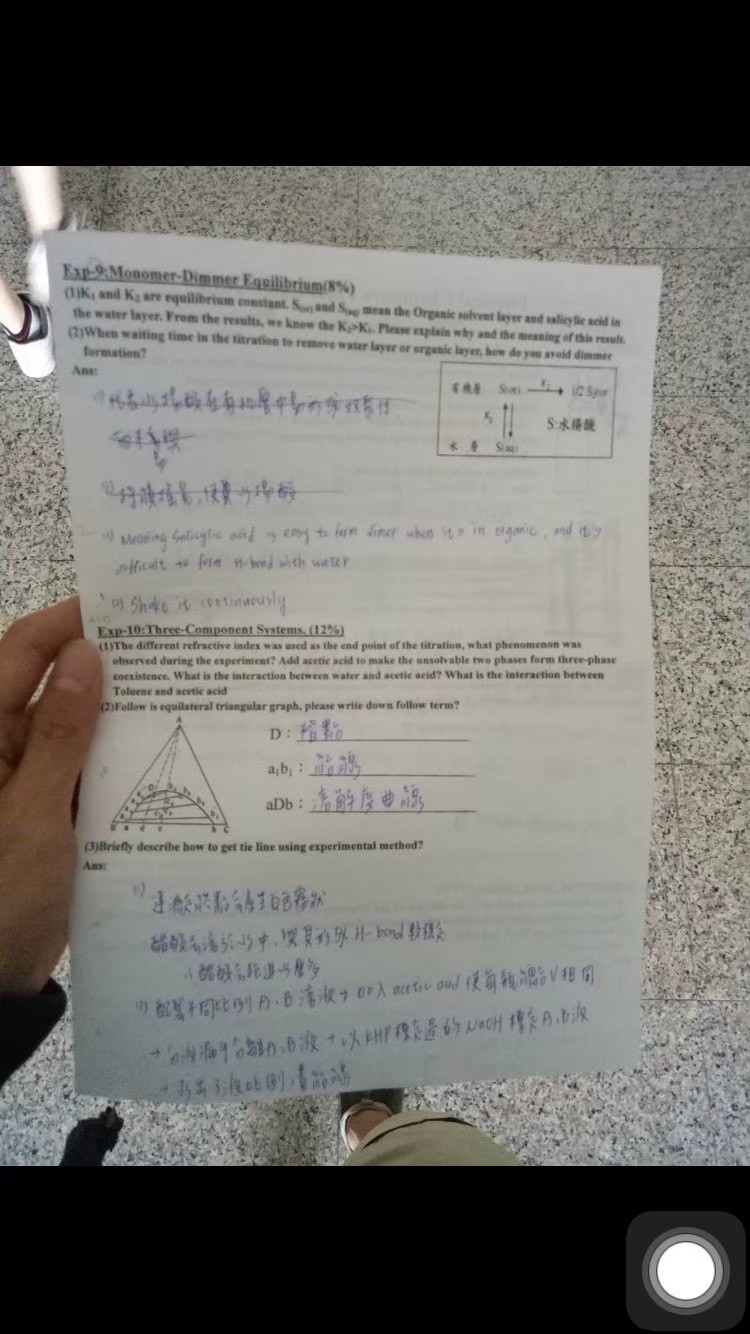 Exp-9:Monomer-Dimmer Equilibrium(8%)
(1)K₁ and K₂ are equilibrium constant. S(or) and S(aq) mean the Organic solvent layer and salicylic acid in
the water layer. From the results, we know the K₂>K₁. Please explain why and the meaning of this result.
(2)When waiting time in the titration to remove water layer or organic layer, how do you avoid dimmer
formation?
Ans:
有機層 S(or) 1/2 S₂(or
K₂
S:水楊酸
水 層 S(aq)
(1) Meaning Salicylic acid is easy to form dimer when it's in organic, and it's
difficult to form H-bond with water
(2) Shake it continuously
Exp-10:Three-Component Systems. (12%)
(1)The different refractive index was used as the end point of the titration, what phenomenon was
observed during the experiment? Add acetic acid to make the unsolvable two phases form three-phase
coexistence. What is the interaction between water and acetic acid? What is the interaction between
Toluene and acetic acid
(2)Follow is equilateral triangular graph, please write down follow term?
A
D : 褶點
a₁b₁ : 結線
aDb : 溶解度曲線
B a d c b C
(3)Briefly describe how to get tie line using experimental method?
Ans:
(1) 達滴定終點會產生白色霧狀
醋酸會溶於水中,與其形成 H-bond 較穩定
醋酸會跑進水層多
配置不同比例 A、B 溶液→ acetic acid 使每瓶 V 相同
→ 分液漏斗分離A、B液 → 以KHP標定過的NaOH標定A、B液
→ 比例,畫結線